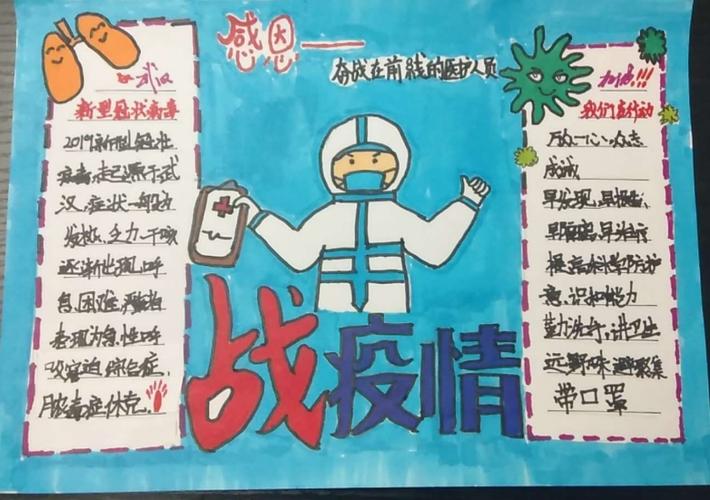 感恩——
奋战在前线的医护人员
武汉
新型冠状病毒
2019新型冠状
病毒,起源于武
汉,症状一般为
发热、乏力、干咳
逐渐出现,呼
吸困难,严重者
表现为急性呼
吸窘迫综合症,
脓毒症休克.
战疫情
加油!!!
我们在行动
万众一心,众志
成诚
早发现,早报告,
早隔离,早治疗
提高科学防护
意识和能力
勤洗手,讲卫生
远野味,避聚集
带口罩